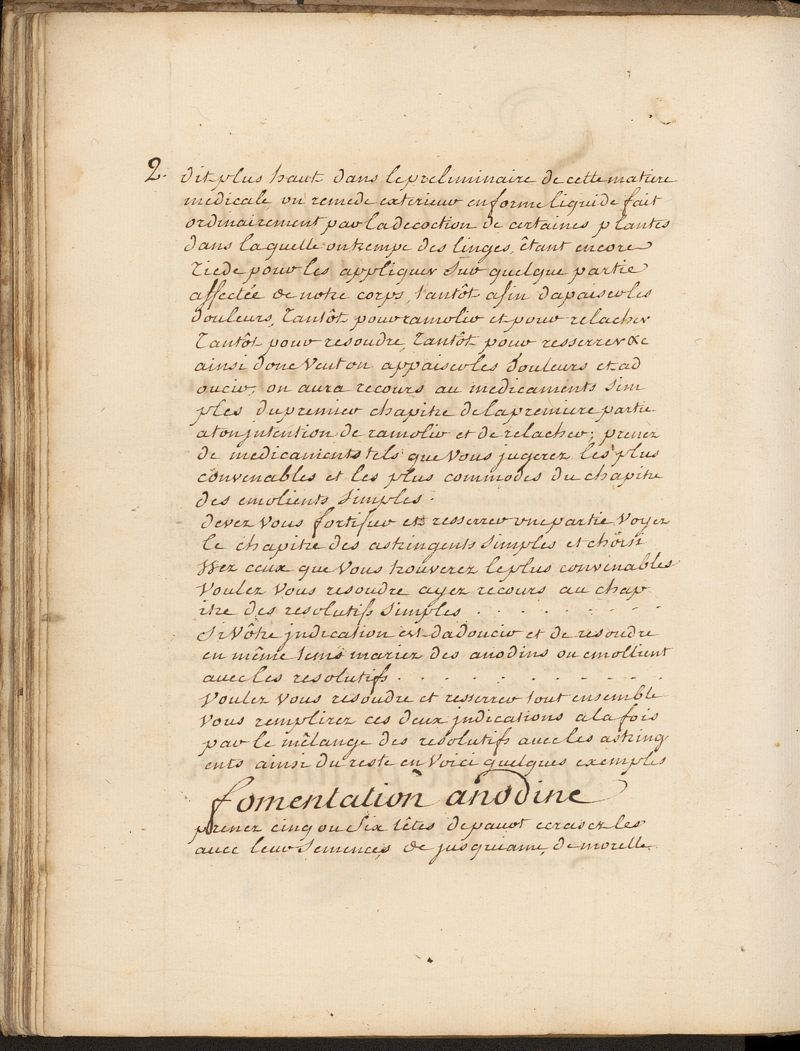 2. dit plus haut dans le preliminaire de cette matiere
medicale un remede exterieur en forme liquide fait
ordinairement par la decoction de certaines plantes
dans laquelle on trempe des linges, êtant encore
tiede pour les appliquer sur quelque partie
affectée de notre corps, tantôt afin dapaiser les
douleurs, tantôt pour ramolir et pour relacher
tantôt pour resoudre, tantôt pour resserrer &c
ainsi donc veut on appaiser les douleurs et ad
oucir, on aura recours au medicaments sim
ples du premier chapitre de la premiere partie
at on jntention de ramolir et de relacher; prenez
de medicaments tels que vous jugerez les plus
convenables et les plus commodes du chapitre
des emolients simples.
devez vous fortifier et resserrer une partie voyez
le chapitre des astringents simples et chôisi
ssez ceux que vous trouverez le plus convenables
voulez vous resoudre ayez recours au chap
itre des resolutifs simples . . . . . . . .
si vôtre jndication est dadoucir et de resoudre
en même tems mariez des anodins ou emollient
avec les resolutifs . . . . . . . . . . .
voulez vous resoudre et resserrer tout ensemble
vous remplirez ces deux jndications a la fois
par le mêlange des resolutifs avec les astring
ents ainsi du reste en voici quelques exemples
fomentation anodine
prenez cinq ou six têtes de pavot ecrasez les
avec leur semences, de jusquiame, de morelle